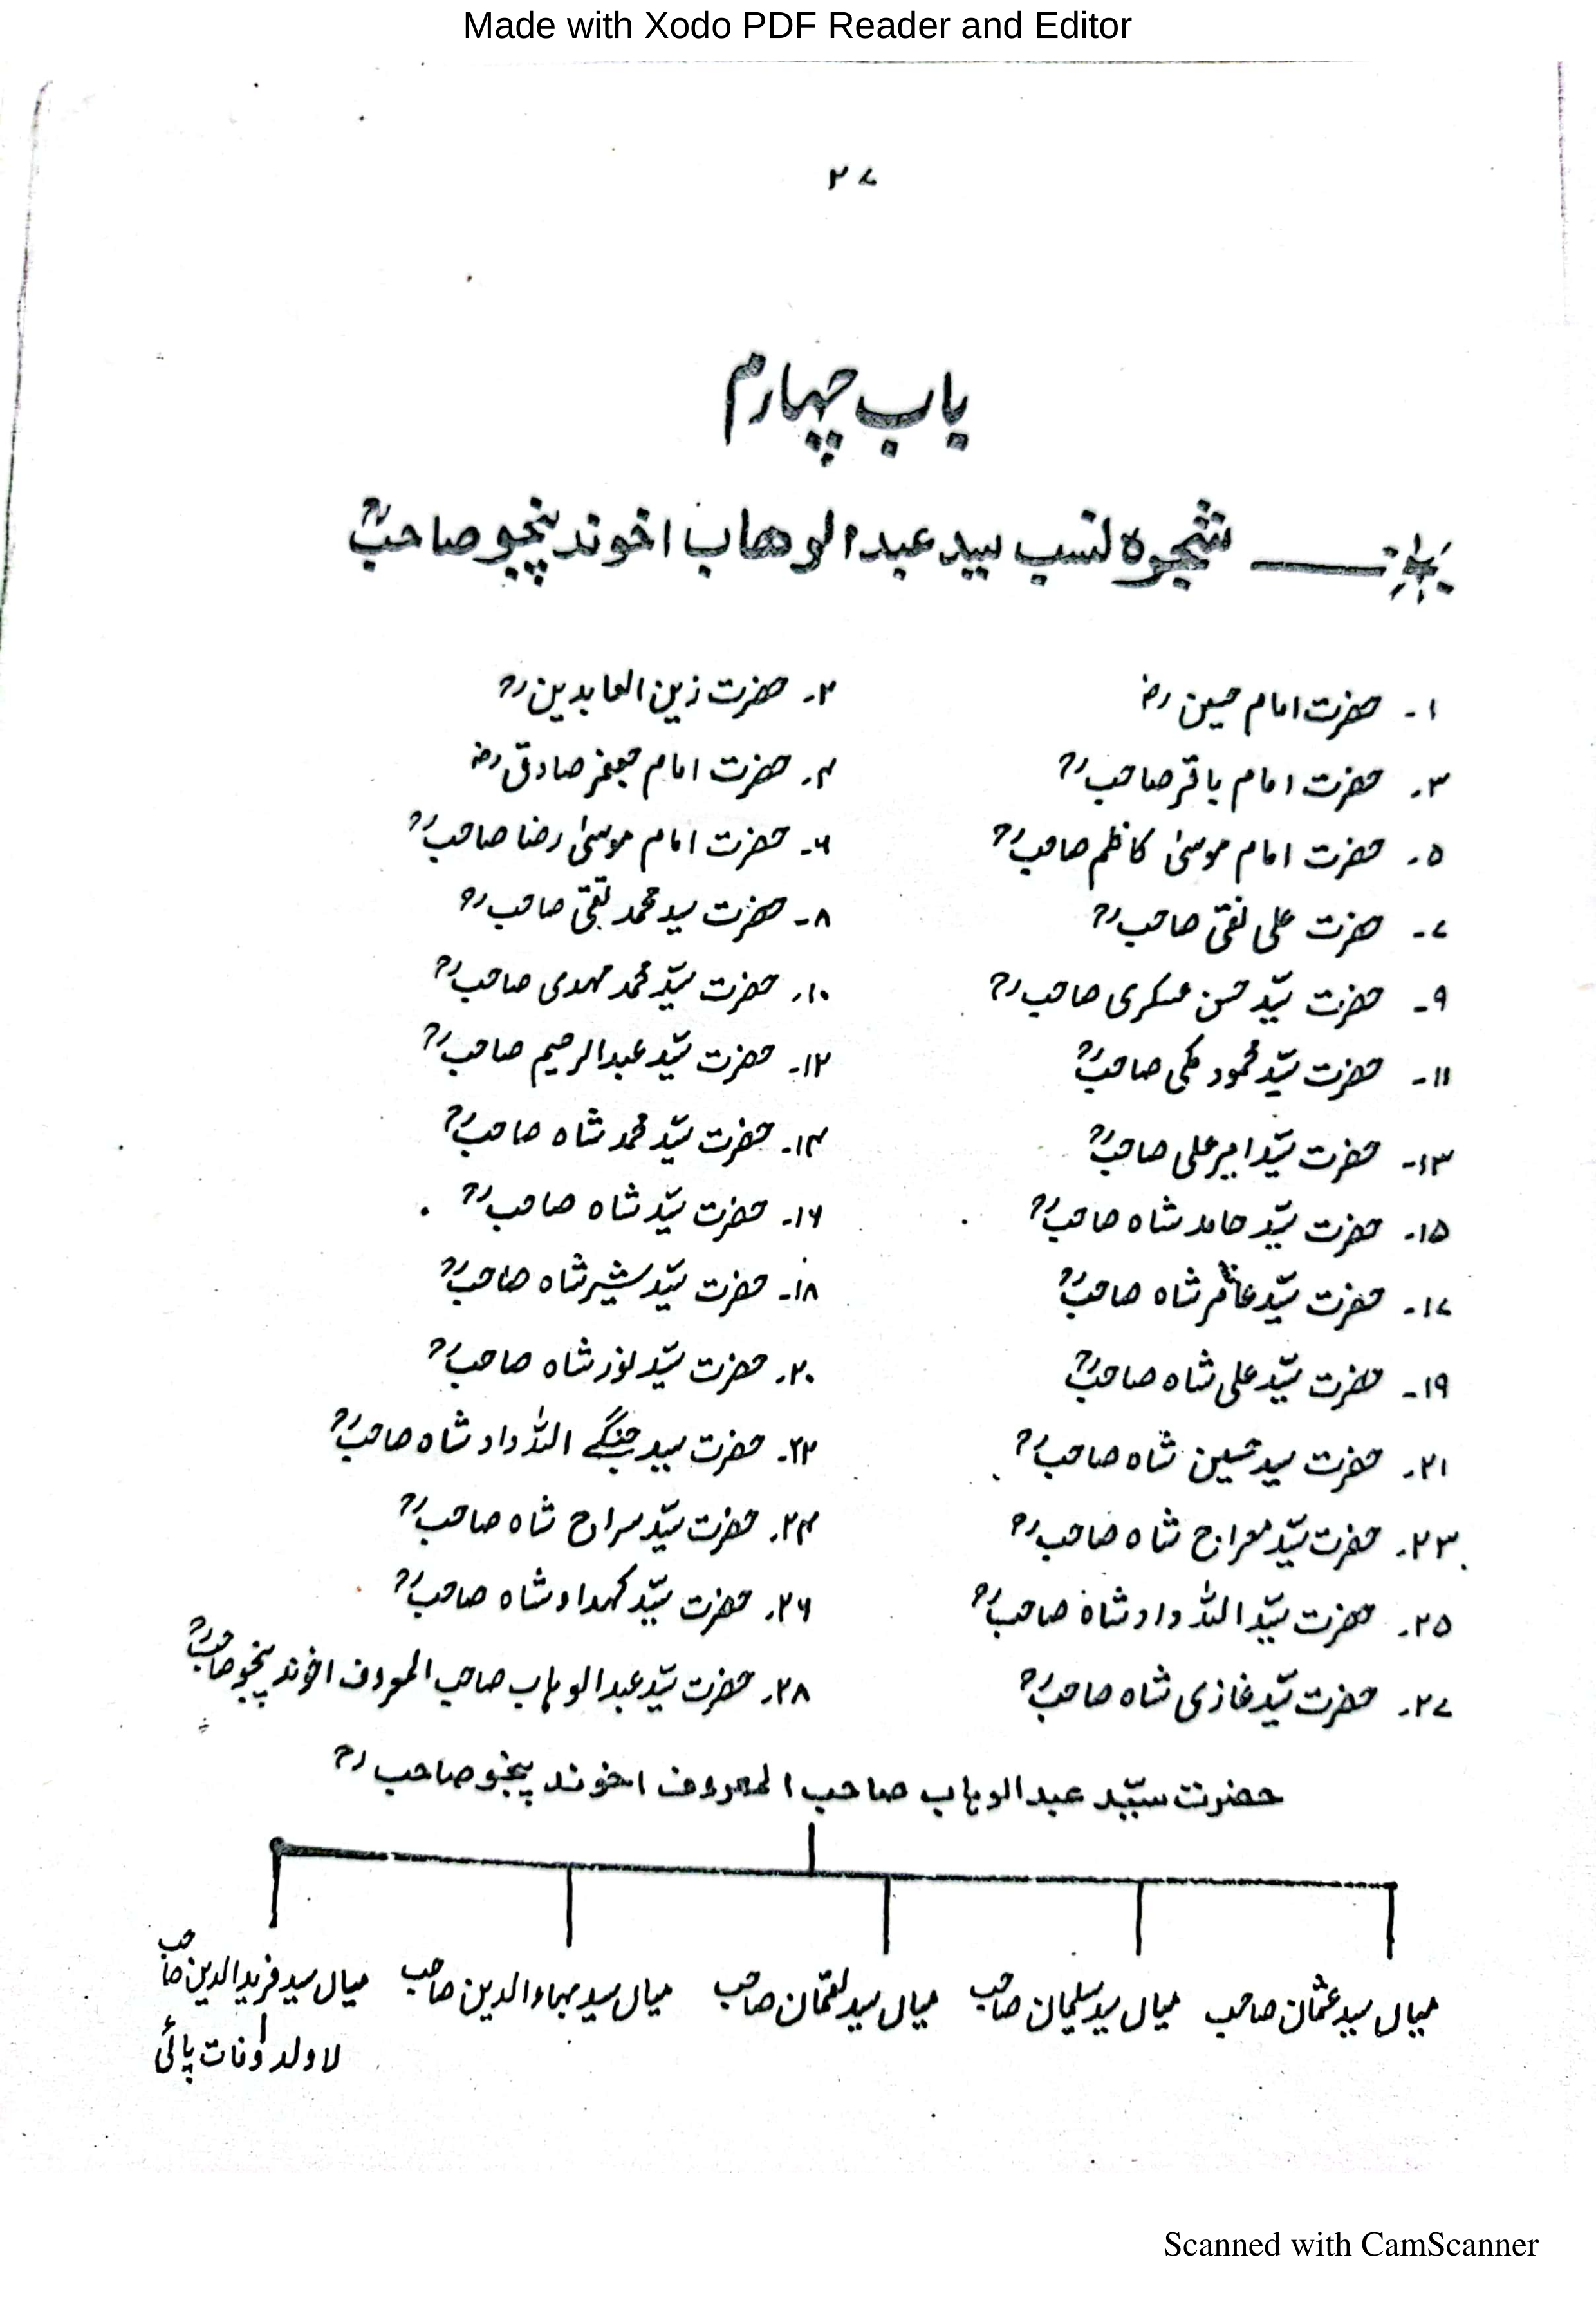 Made with Xodo PDF Reader and Editor
۲۷
باب چہارم
شجرہ نسب سید عبدالوھاب اخوند پنجو صاحبؒ
۱۔ حضرت امام حسین رض
۲۔ حضرت زین العابدین رح
۳۔ حضرت امام باقر صاحب رح
۴۔ حضرت امام جعفر صادق رض
۵۔ حضرت امام موسیٰ کاظم صاحب رح
۶۔ حضرت امام موسیٰ رضا صاحب رح
۷۔ حضرت علی نقی صاحب رح
۸۔ حضرت سید محمد تقی صاحب رح
۹۔ حضرت سیّد حسن عسکری صاحب رح
۱۰۔ حضرت سیّد محمد مہدی صاحب رح
۱۱۔ حضرت سیّد محمود مکی صاحبؒ
۱۲۔ حضرت سیّد عبدالرحیم صاحب رح
۱۳۔ حضرت سیّد امیر علی صاحبؒ
۱۴۔ حضرت سیّد محمد شاہ صاحبؒ
۱۵۔ حضرت سیّد حامد شاہ صاحبؒ
۱۶۔ حضرت سیّد شاہ صاحب رح
۱۷۔ حضرت سیّد شاہ صاحبؒ
۱۸۔ حضرت سیّد شیر شاہ صاحبؒ
۱۹۔ حضرت سیّد علی شاہ صاحبؒ
۲۰۔ حضرت سیّد نور شاہ صاحب رح
۲۱۔ حضرت سید حسین شاہ صاحبؒ
۲۲۔ حضرت سید جنگے اللہ داد شاہ صاحبؒ
۲۳۔ حضرت سیّد معراج شاہ صاحب رح
۲۴۔ حضرت سیّد سراج شاہ صاحبؒ
۲۵۔ حضرت سیّد اللہ داد شاہ صاحبؒ
۲۶۔ حضرت سیّد کہداد شاہ صاحبؒ
۲۷۔ حضرت سیّد غازی شاہ صاحبؒ
۲۸۔ حضرت سیّد عبدالوہاب صاحب المعروف اخوند پنجو صاحبؒ
حضرت سیّد عبدالوہاب صاحب المعروف اخوند پنجو صاحب رح
میاں سید عثمان صاحب
میاں سید سلیمان صاحب
میاں سید لقمان صاحب
میاں سید بہاوالدین صاحب
میاں سید فریدالدین صاحب
لاولد وفات پائی
Scanned with CamScanner